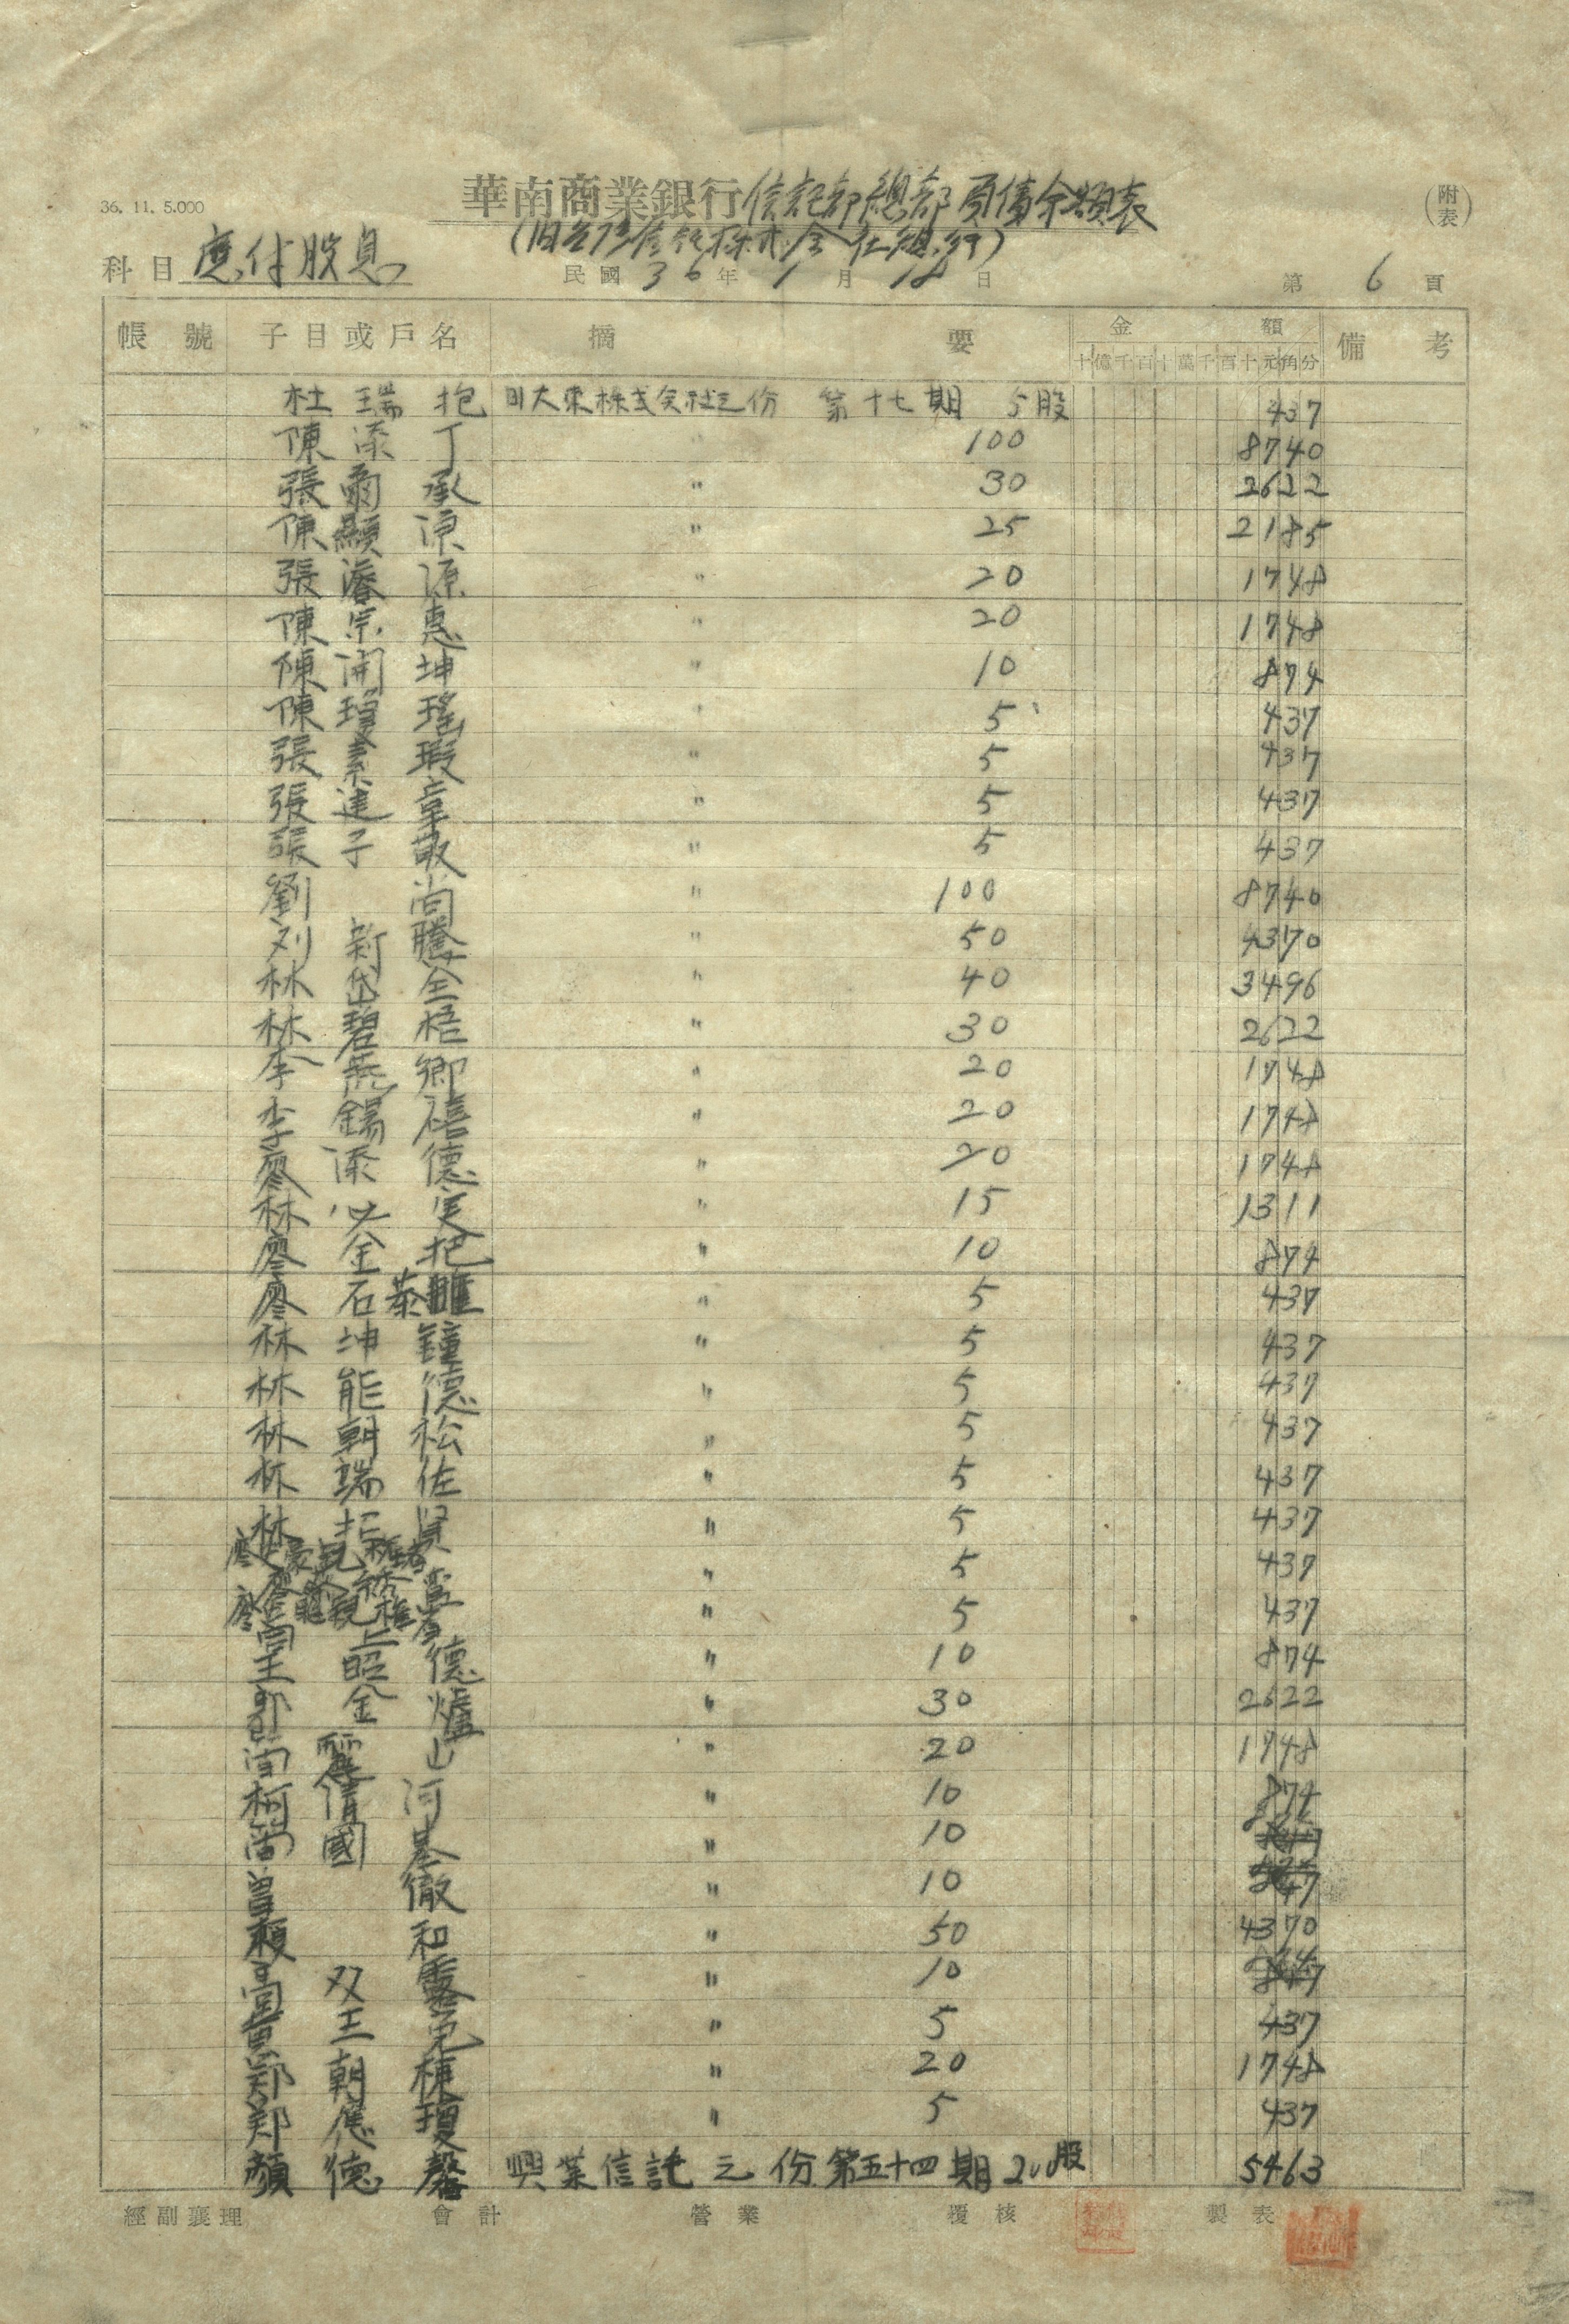 36. 11. 5.000
華南商業銀行信託部總部負債余額表
(附表)
(旧台湾信託株式会社總行)
科目 應付股息
民國 36 年 1 月 18 日
第 6 頁
帳號 子目或戶名 摘要 金額 備考
十億千百十萬千百十元角分
杜瑞抱 旧大東株式会社之份 第十七期 5股 437
陳添丁 〃 100 8740
張爾承 〃 30 2622
陳顯源 〃 25 2185
張濬源 〃 20 1748
陳宗惠 〃 20 1748
陳開坤 〃 10 874
陳瑤 〃 5 437
張素瑕 〃 5 437
張建章 〃 5 437
張子敬 〃 5 437
劉尚 〃 100 8740
刘新騰 〃 50 4370
林岱全 〃 40 3496
林碧梧 〃 30 2622
李虎卿 〃 20 1748
李錫禧 〃 20 1748
廖添德 〃 20 1748
林必実 〃 15 1311
廖金把 〃 10 874
廖石泰 〃 5 437
林坤鐘 〃 5 437
林能德 〃 5 437
林朝松 〃 5 437
林端佐 〃 5 437
林賢 〃 5 437
〃 5 437
〃 5 437
王昭德 〃 10 874
郭金爐 〃 30 2622
麗山 〃 20 1748
柯倩河 〃 10 874
國基 〃 10
曾徹 〃 10
賴和 〃 50 4370
高双露 〃 10 874
王兎 〃 5 437
郑朝棟 〃 20 1748
郑應瓊 〃 5 437
顏德馨 興業信託之份 第五十四期 200股 5463
經副襄理 會計 營業 覆核 製表